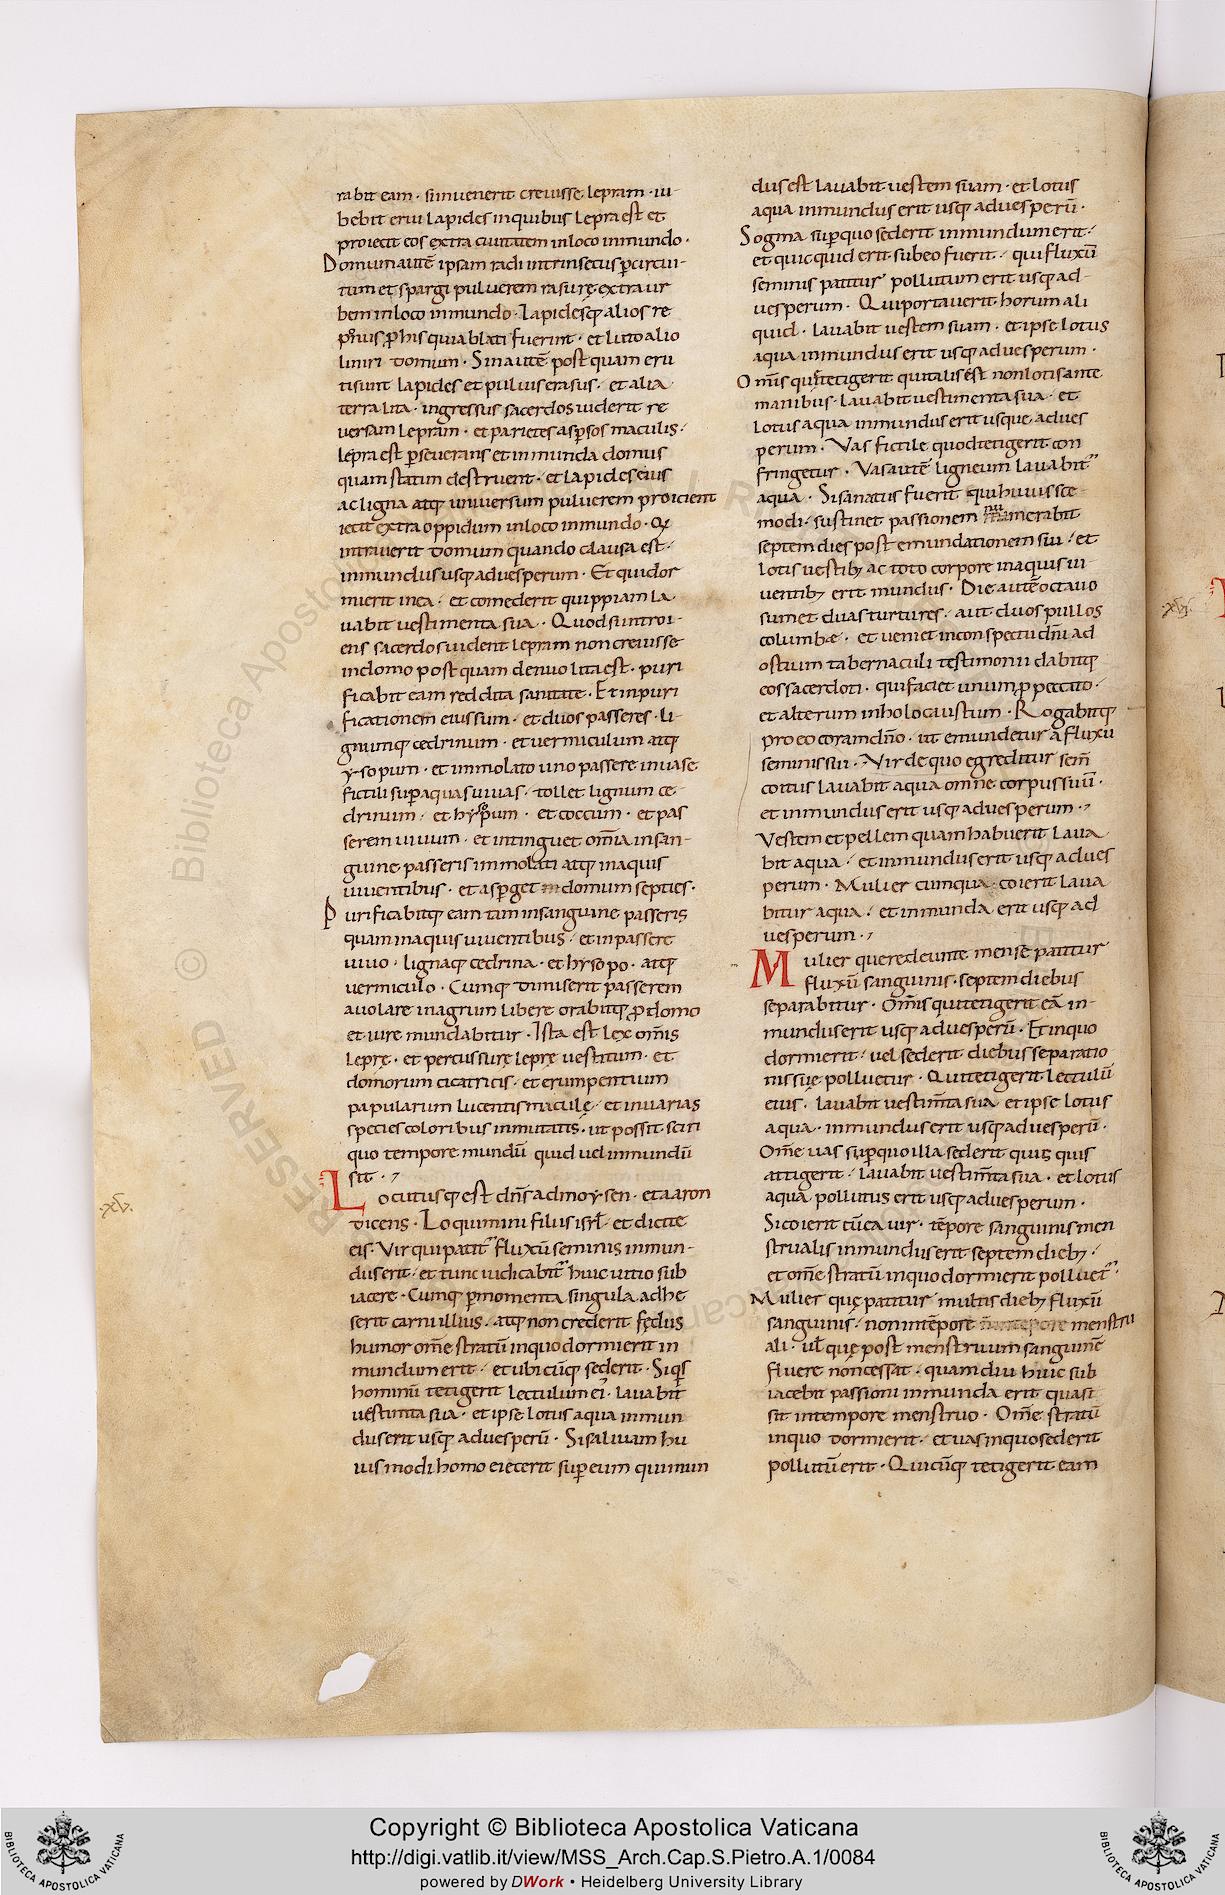 rabit eam · si invenerit crevisse lepram · iu-
bebit erui lapides in quibus lepra est et
proiecit eos extra civitatem in loco inmundo ·
Domum autē ipsam radi intrinsecus p circui-
tum et spargi pulverem rasurę extra ur
bem in loco inmundo · lapidesq; alios re
poni p his qui ablati fuerint · et luto alio
liniri domum · Sin autē post quam eru
ti sunt lapides et pulvis erasus · et alia
terra lita · ingressus sacerdos viderit re
versam lepram · et parietes aspersos maculis ·
lepra est p severans et inmunda domus
quam statim destruent · et lapides eius
ac ligna atq; universum pulverem proicient
iecit extra oppidum in loco inmundo · Q
intraverit domum quando clausa est ·
inmundus usq; ad vesperum · Et qui dor
mierit in ea · et comederit quippiam la
vabit vestimenta sua · Quod si introi-
ens sacerdos viderit lepram non crevisse
in domo post quam denuo lita est · puri
ficabit eam reddita sanitate · Et in puri
ficationem eius sum · et duos passeres · li-
gnumq; cedrinum · et vermiculum atq;
ysopum · et immolato uno passere in vase
fictili sup aquas vivas · tollet lignum ce-
drinum · et hysopum · et coccum · et pas
serem vivum · et intinguet omīa in san-
guine passeris immolati atq; in aquis
viventibus · et asp get domum septies ·
Purificabitq; eam tam in sanguine passeris
quam in aquis viventibus · et in passere
vivo · lignaq; cedrina · et hysopo · atq;
vermiculo · Cumq; dimiserit passerem
avolare in agrum libere orabitq; p domo
et iure mundabitur · Ista est lex om̄is
leprę · et percussurę leprę vestium · et
domorum cicatricis · et erumpentium
papularum lucentis maculę · et in varias
species coloribus inmutatis · ut possit sciri
quo tempore mundū quid vel inmundū
sit ·
Locutusq; est dn̄s ad moysen · et aaron
dicens · Loquimini filiis isrł · et dicite
eis · Vir qui patit fluxū seminis inmun-
dus erit · et tunc iudicabit huic vitio sub
iacere · Cumq; p momenta singula adhe
serit carni illius · atq; non crederit fędus
humor om̄e stratū in quo dormierit in
mundum erit · et ubicūq; sederit · Siqs
hominū tetigerit lectulum ei lavabit
vestim̄ta sua · et ipse lotus aqua inmun
dus erit usq; ad vesperū · Si salivam hu
ius modi homo eiecerit sup eum qui mun
dus est lavabit vestem suam · et lotus
aqua inmundus erit usq; ad vesperū ·
Sogma sup quo sederit inmundum erit ·
et quicquid erit sub eo fuerit · qui fluxū
seminis patitur pollutum erit usq; ad
vesperum · Qui portaverit horum ali
quid · lavabit vestem suam · et ipse lotus
aqua inmundus erit usq; ad vesperum ·
Om̄is quē tetigerit qui talis est non lotis ante
manibus · lavabit vestimenta sua · et
lotus aqua inmundus erit usque ad ves
perum · Vas fictile quod tetigerit con
fringetur · Vas autē ligneum lavabit
aqua · Si sanatus fuerit qui huiusce
modi · sustinet passionem numerabit
septem dies post emundationem sui · et
lotis vestib; ac toto corpore in aquis vi
ventib; erit mundus · Die autē octavo
sumet duas turtures · aut duos pullos
columbæ · et veniet in conspectu dn̄i ad
ostium tabernaculi testimonii dabitq;
eos sacerdoti · qui faciet unum p peccato ·
et alterum in holocaustum · Rogabitq;
pro eo coram dn̄o · ut emundetur a fluxu
seminis sui · Vir de quo egreditur sem̄
coitus lavabit aqua omne corpus suū ·
et inmundus erit usq; ad vesperum ·
Vestem et pellem quam habuerit lava
bit aqua · et inmundus erit usq; ad ves
perum · Mulier cum qua coierit lava
bitur aqua · et inmunda erit usq; ad
vesperum ·
Mulier que redeunte mense patitur
fluxū sanguinis · septem diebus
separabitur · Om̄is qui tetigerit eā in-
mundus erit usq; ad vesperū · Et in quo
dormierit · vel sederit diebus separatio
nis suę polluetur · Qui tetigerit lectulū
eius · lavabit vestim̄ta sua et ipse lotus
aqua · inmundus erit usq; ad vesperū ·
Om̄e vas sup quo illa sederit quis quis
attigerit · lavabit vestim̄ta sua · et lotus
aqua pollutus erit usq; ad vesperum ·
Si coierit cū ea vir · tēpore sanguinis men
strualis inmundus erit septem dieb; ·
et om̄e stratū in quo dormierit polluet ·
Mulier quę patitur multis dieb; fluxū
sanguinis · non in tēpore menstru
ali · vł quę post menstruum sanguinē
fluere non cessat · quam diu huic sub
iacebit passioni inmunda erit quasi
sit in tempore menstruo · Om̄e stratū
in quo dormierit · et vas in quo sederit
pollutū erit · Quicūq; tetigerit eam
·xv·
·xvi·
Copyright © Biblioteca Apostolica Vaticana
http://digi.vatlib.it/view/MSS_Arch.Cap.S.Pietro.A.1/0084
powered by DWork • Heidelberg University Library
BIBLIOTECA APOSTOLICA VATICANA
BIBLIOTECA APOSTOLICA VATICANA